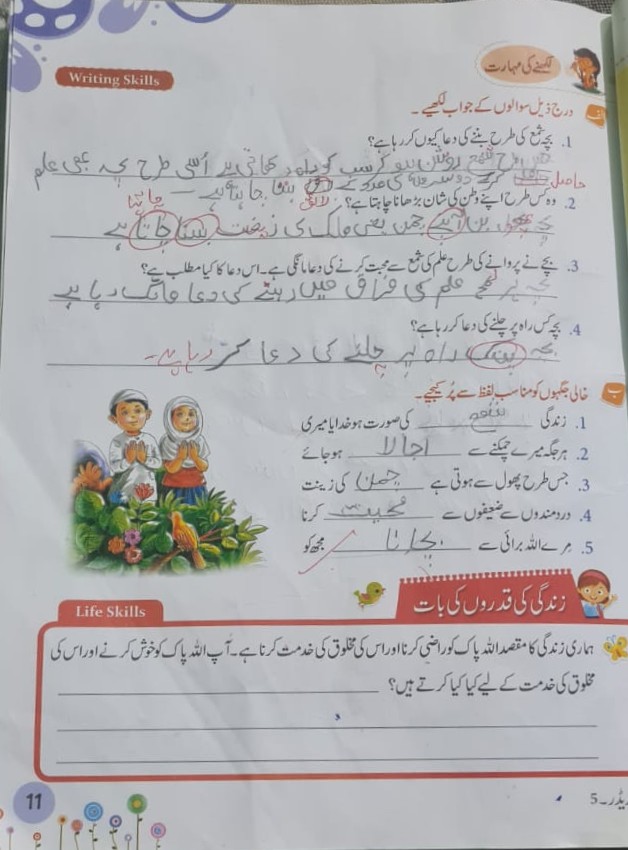 Writing Skills
لکھنے کی مہارت
الف
درج ذیل سوالوں کے جواب لکھیے۔
1. بچہ شمع کی طرح بننے کی دعا کیوں کر رہا ہے؟
طرح شمع روشن ہو کر سب کو راہ دکھاتی ہے اُسی طرح بچہ بھی علم
حاصل کرکے
2. وہ کس طرح اپنے وطن کی شان بڑھانا چاہتا ہے؟
چاہتا
بچہ پھول بن چمن یعنی ملک کی زینت بننا چاتا ہے
3. بچے نے پروانے کی طرح علم کی شمع سے محبت کرنے کی دعا مانگی ہے۔ اس دعا کا کیا مطلب ہے؟
بچہ ہر لمحے علم کی فراق میں رہنے کی دعا مانگ رہا ہے
4. بچہ کس راہ پر چلنے کی دعا کر رہا ہے؟
بچہ نیک راہ پر چلنے کی دعا کر رہا ہے۔
ب
خالی جگہوں کو مناسب لفظ سے پُر کیجیے۔
1. زندگی شمع کی صورت ہو خدایا میری
2. ہر جگہ میرے چمکنے سے اجالا ہو جائے
3. جس طرح پھول سے ہوتی ہے چمن کی زینت
4. دردمندوں سے ضعیفوں سے محبت کرنا
5. مرے اللہ برائی سے بچانا مجھ کو
زندگی کی قدروں کی بات
Life Skills
ہماری زندگی کا مقصد اللہ پاک کو راضی کرنا اور اس کی مخلوق کی خدمت کرنا ہے۔ آپ اللہ پاک کو خوش کرنے اور اس کی
مخلوق کی خدمت کے لیے کیا کیا کرتے ہیں؟
11
ریڈر۔5